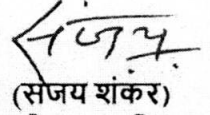 संजय
(संजय शंकर)